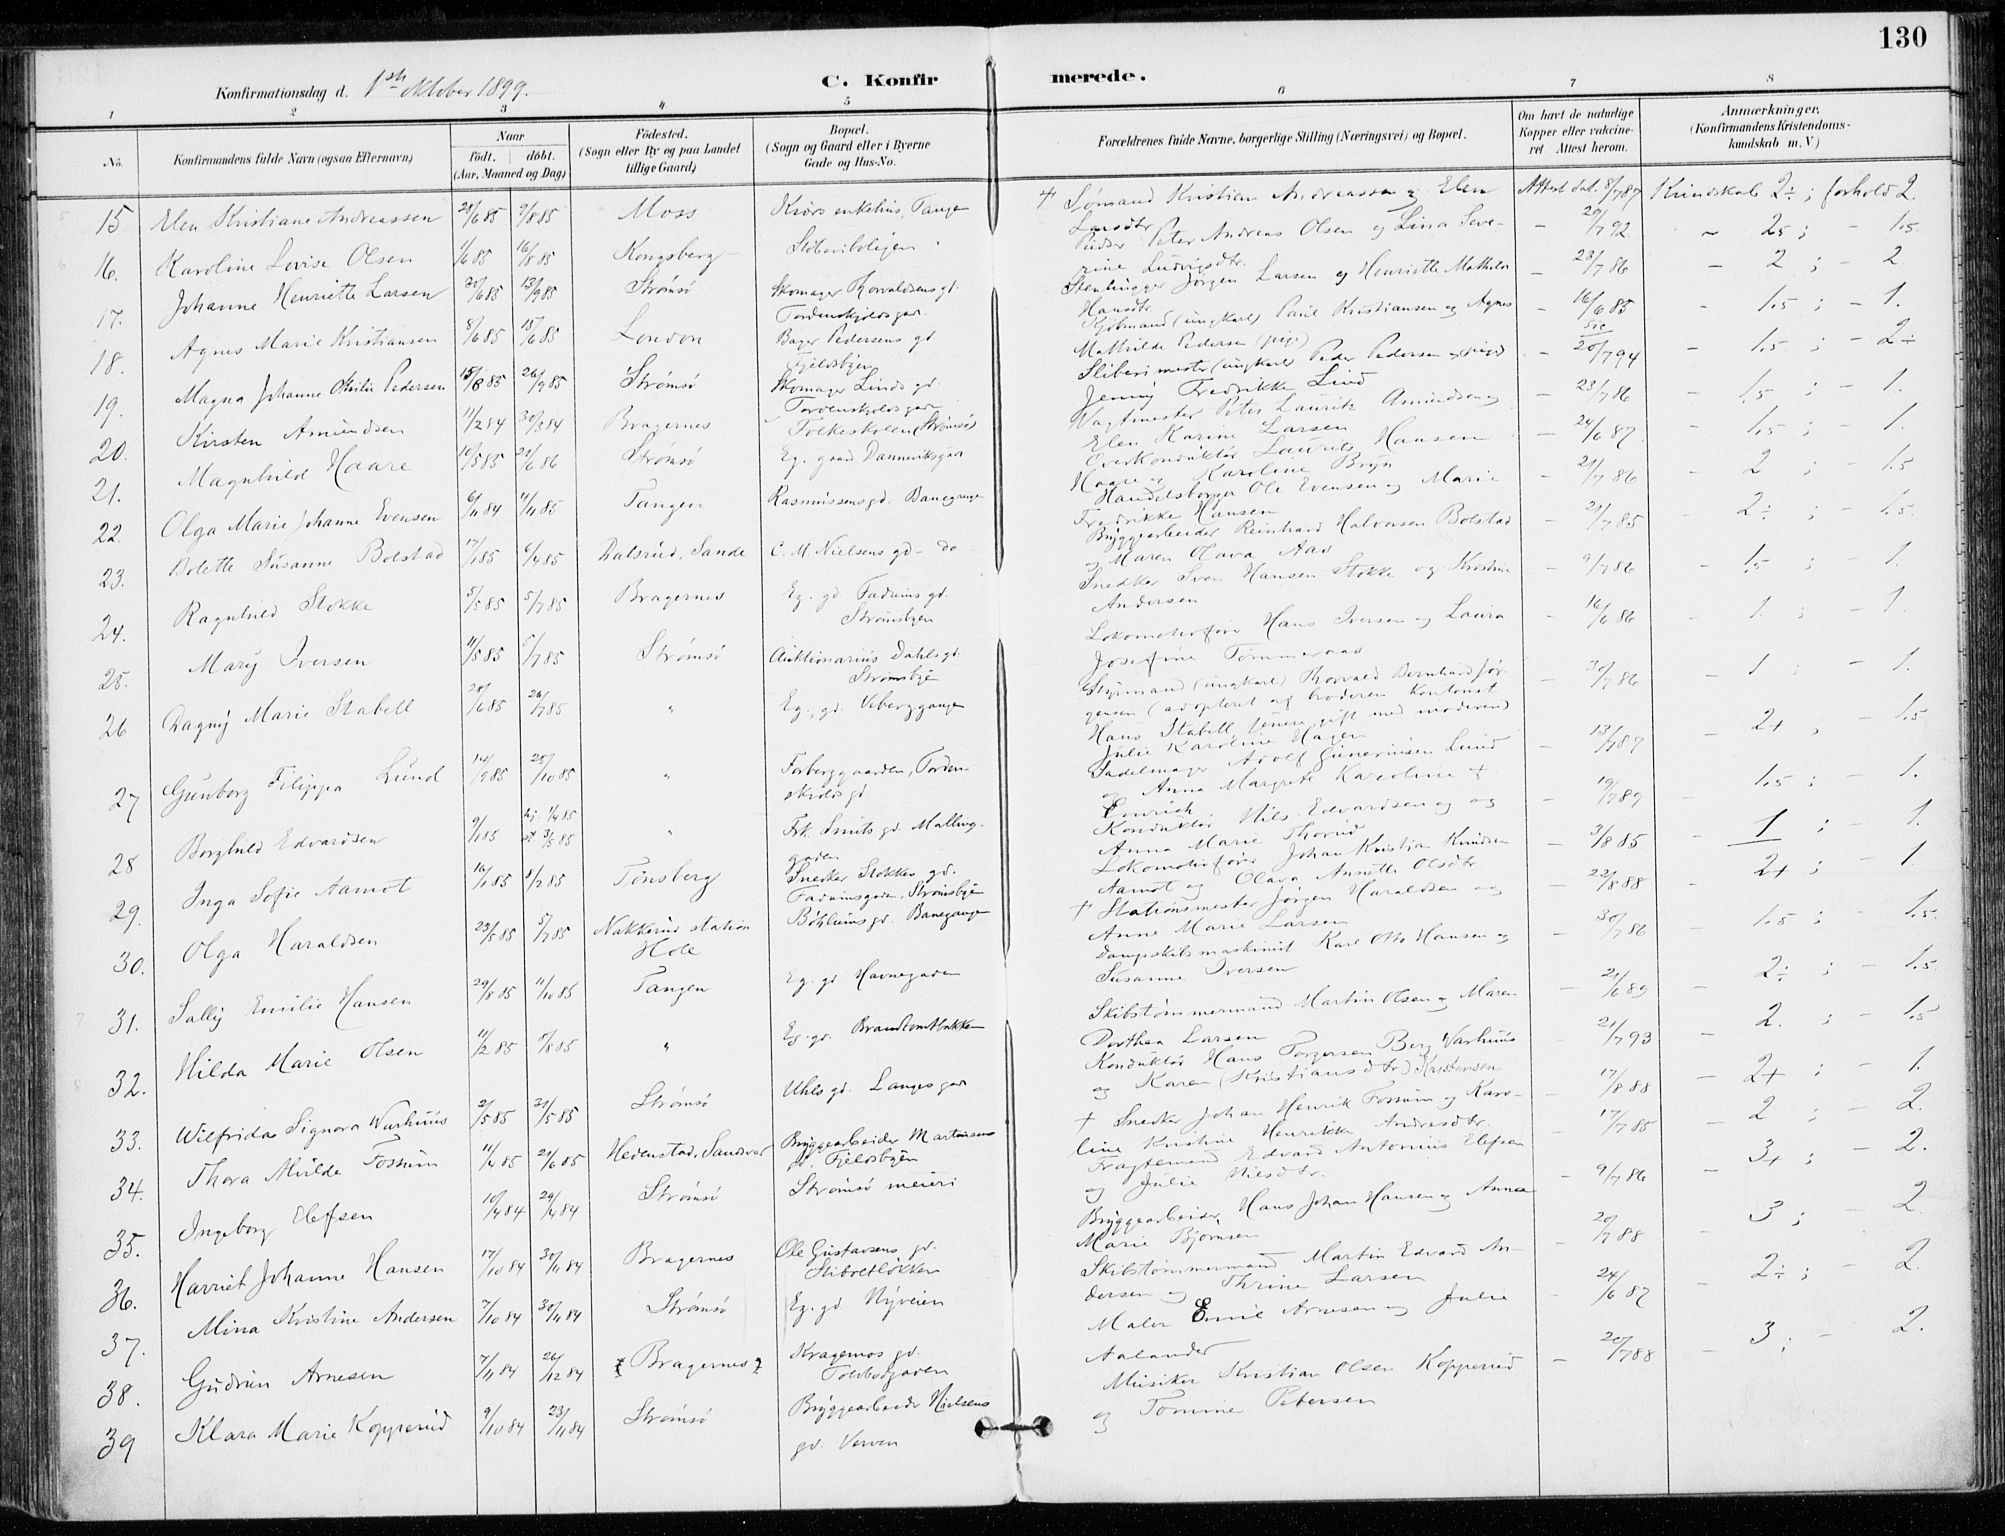 130
Konfirmationsdag d. 1ste Oktober 1899.
C. Konfirmerede.
1 2 3 4 5 6 7 8
No. Konfirmandens fulde Navn (ogsaa Efternavn) Naar født. døbt. (Aar, Maaned og Dag) Fødested. (Sogn eller By og paa Landet tillige Gaard) Bopæl. (Sogn og Gaard eller i Byerne Gade og Hus-No. Forældrenes fulde Navne, borgerlige Stilling (Næringsvei) og Bopæl. Om havt de naturlige Kopper eller vaccineret Attest herom. Anmærkninger. (Konfirmandens Kristendomskundskab m. V)
15 Elen Kristiane Andreassen 7/8 85 Moss enkehus, Tangen + Sømand Kristian Andreassen og Elen Larsdtr Attest dat. 8/7 87 Kundskab 2÷; forhold 2.
16. Karoline Lovise Olsen 1/6 85 16/8 85 Kongsberg Sliberiboligen Peter Andreas Olsen og Lina Severine Ludvigsdtr. - 29/7 92 2,5; - 1.5
17. Johanne Henriette Larsen 30/6 85 13/9 85 Strømsø Skomager Torvaldsens gd. Tordenskjoldsgad. Stenhugger Jørgen Larsen og Henriette Mathilde Hansdtr - 28/7 86 - 2; - 2
18. Agnes Marie Kristiansen 8/6 85 18/6 85 London Bager Pedersens gd Fjeldsbyen Kjøbmand (ungkarl) Paul Kristiansen og Agnes Mathilde Pedersen (pige) - 16/6 85 sic - 1.5; - 1.
19. Magna Johanne Othilie Pedersen 26/9 85 Strømsø Skomager Linds gd. Tordenskjolds gad Sliberimester (ungkarl) Peder Pedersen og (pige) Jenny Fredrikke Lind - 20/7 94 - 1.5; - 2÷
20. Kirsten Amundsen 11/2 84 30/3 84 Bragernes Folkeskolen (Strømsø) Vagtmester Peter Lauritz Amundsen og Elen Karine Larsen - 23/7 86 - 1.5; - 1.
21. Magnhild Haare 10/5 85 21/6 86 Strømsø Eg. gaard Danneviksgad Overkonduktør Laurits Hansen Haare og Karoline Bryn - 24/6 87 - 1.5; - 1.
22 Olga Marie Johanne Evensen 6/11 84 4/1 85 Tangen Rasmussens gd. Banegangen Handelsborger Ole Evensen og Marie Fredrikke Hansen - 21/7 86 - 2; - 1.5
23. Bolette Susanne Bolstad 17/1 85 6/4 85 Dalsrud, Sande C. M. Nielsens gd - do Bryggearbeider Reinhard Halvorsen Bolstad og Maren Olava Aas - 21/7 85 - 2÷; - 1.5.
24. Ragnhild Stokke 5/5 85 5/7 85 Bragernes Eg. gd. Fadums gd. Strømsbyen Snedker Sven Hansen Stokke og Kristine Andersen - 9/7 86 - 1.5; - 1.
25. Mary Iversen 11/5 85 5/7 85 Strømsø Auktionarius Dahls gd. Strømsbyen Lokomotivfører Hans Iversen og Laura Josefine Tømmeraas - 16/6 86 - 1.; - 1.
26 Dagny Marie Stabell 20/6 85 26/7 85 " Eg. gd. Veberggangen Styrmand (ungkarl) Torvald Bernhard Jørgensen (adopteret af broderen Kontorist Hans Stabell, senere gift med moderen) Julie Karoline Hagen - 30/7 86 - 1; - 1.
27 Gunborg Filippa Lund 14/9 85 25/10 85 " Forberggaarden, Tordenskjoldsgd Sadelmager Adolf Gunerius Lund og Anna Margrete Karoline + Emrich - 13/7 87 - 2+; - 1.5
28 Borghild Edvardsen 9/1 85 hj. 1/4 85 st 3/5 85 " Frk. Smits gd. Mallinggaden Konduktør Nils Edvardsen og Anna Marie Thorud - 19/7 89 - 1.5; - 1.
29. Inga Sofie Aamot 16/1 85 8/2 85 Tønsberg Snedker Stokkes gd. Fadumsgaden, Strømsbyen Lokomotivfører Johan Kristian Knudsen Aamot og Olava Annette Olsdtr. - 3/8 85 - 1; - 1.
30. Olga Haraldsen 23/5 85 5/7 85 Nakkerud station Hole gd. Banegangen + Stationsmester Jørgen Haraldsen og Anne Marie Larsen - 22/8 88 - 2+; - 1
31. Sally Emilie Hansen 29/8 85 11/10 85 Tangen Eg. gd Havnegaden Dampskibsmaskinist Karl Otto Hansen og Susanne Iversen - 30/7 86 - 1.5; - 1.5.
32. Hilda Marie Olsen 11/2 85 " Eg. gd. Brandtomtbakken Skibstømmermand Martin Olsen og Maren Dorthea Larsen - 21/6 89 - 2÷; - 1.5.
33. Wilfrida Signora Warhuus 2/5 85 31/5 85 Strømsø Uhls gd. Langes gad Konduktør Hans Torgersen Berg Warhuus og Karen (Kristiansdtr) Kristensen - 21/7 93 - 2.; - 1.5
34. Thora Mulde Fossum 11/4 85 21/6 85 Hedenstad, Sandsvær Bryggearbeider Martinsens gd. Fjeldsbyen + Snedker Johan Henrik Fossum og Karoline Kristine Henrikke Andresdtr. - 17/8 88 - 2+; - 1.
35. Ingeborg Elefsen 10/4 84 29/4 84 Strømsø Strømsø meieri Fragtemand Edvard Antonius Elefsen og Julie Nilsdtr. - 17/7 85 - 2; - 2.
36. Harriet Johanne Hansen 17/10 84 30/11 84 Bragernes Ole Gustavsens gd. Stiboltløkken Bryggearbeider Hans Johan Hansen og Anna Marie Bjørnsen - 9/7 86 - 3+; - 2.
37. Mina Kristine Andersen 7/10 84 30/11 84 Strømsø Eg. gd. Nyveien Skibstømmermand Martin Edvard Andersen og Thrine Larsen - 20/7 88 - 3; - 2
38. Gudrun Arnesen 7/11 84 26/12 84 Bragernes Kragemos gd. Toldbodgaden Maler Emil Arnesen og Julie Aalander - 24/6 87 - 2÷; - 2.
39 Klara Marie Kopperud 9/10 84 23/11 84 Strømsø Bryggearbeider Nielsens gd. Verven Musiker Kristian Olsen Kopperud og Tomine Petersen - 20/7 88 - 3; - 2.